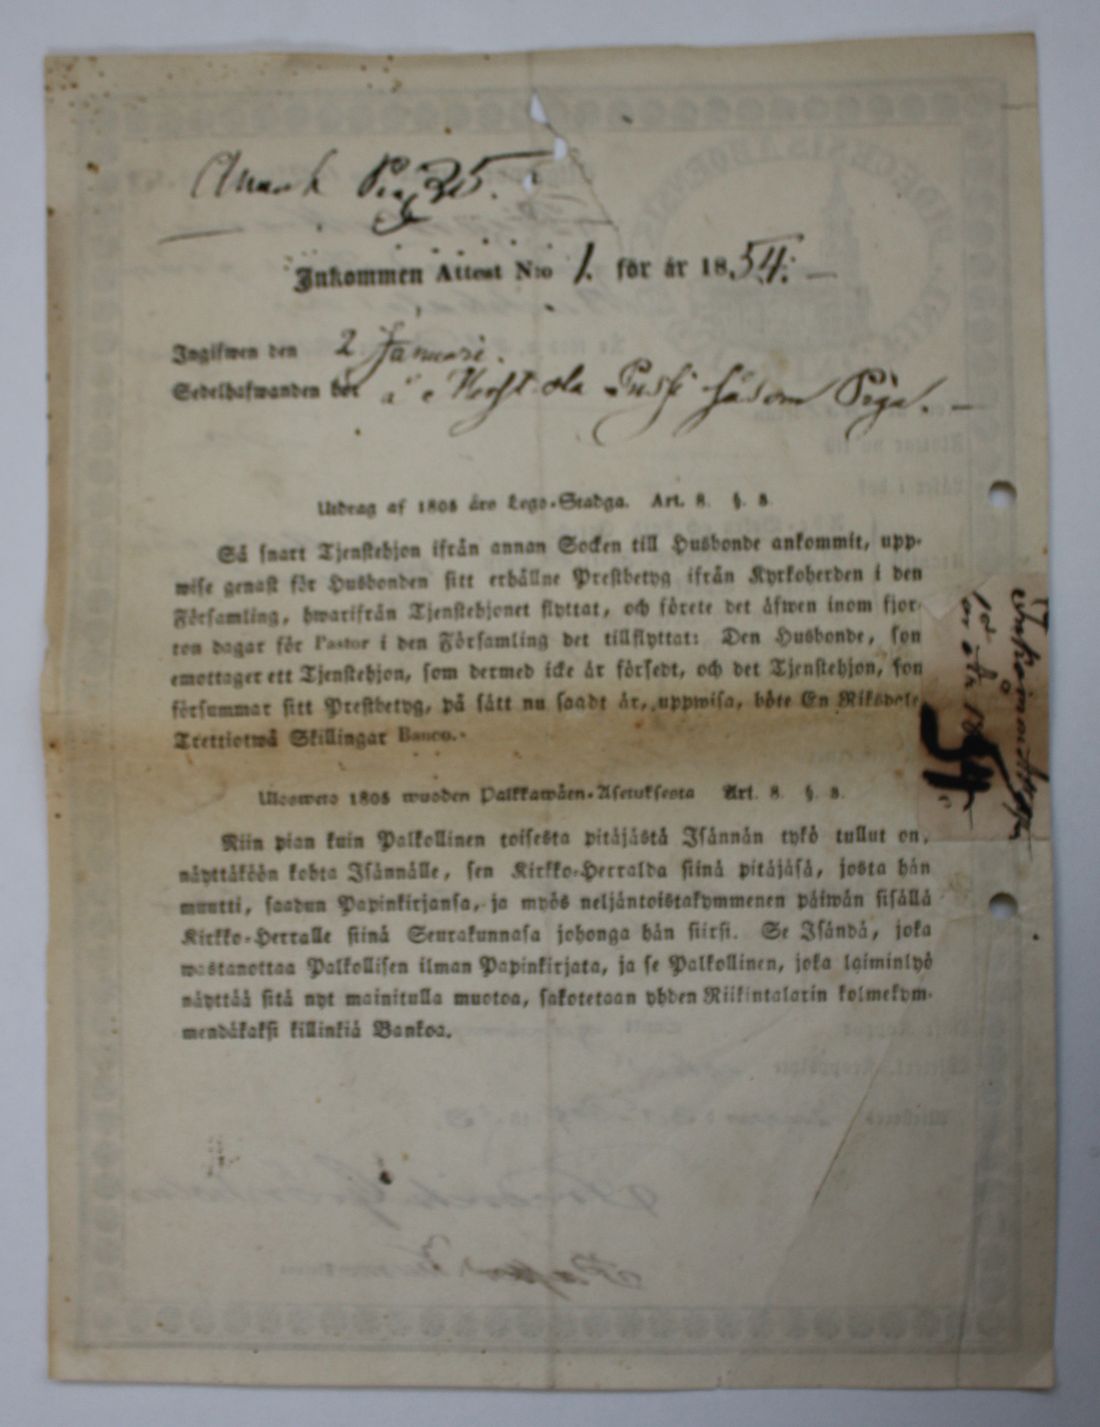 Pag 25.
Inkommen Attest N:o 1. för år 1854.
Ingifwen den 2 Januari.
Sedelhafwanden bor å Puski såsom Piga.
Utdrag af 1805 års Lego-Stadga. Art. 8. §. 8.
Så snart Tjenstehjon ifrån annan Socken till Husbonde ankommit, upp-
wise genast för Husbonden sitt erhållne Prestbetyg ifrån Kyrkoherden i den
Församling, hwarifrån Tjenstehjonet flyttat, och förete det äfwen inom fjor-
ton dagar för Pastor i den Församling det tillflyttat: Den Husbonde, son
emottager ett Tjenstehjon, som dermed icke är försedt, och det Tjenstehjon, son
försummar sitt Prestbetyg, på sätt nu sagdt är, uppwisa, böte En Riksdale
Trettiotwå Skillingar Banco.
Ulosweto 1805 wuoden Palkkawäen-Asetuksesta Art. 8. §. 8.
Niin pian kuin Palkollinen toisesta pitäjästä Isännän tykö tullut on,
näyttäköön kohta Isännälle, sen Kirkko-Herralda siinä pitäjäsä, josta hän
muutti, saadun Papinkirjansa, ja myös neljäntoistakymmenen päiwän sisällä
Kirkko-Herralle siinä Seurakunnasa johonga hän siirsi. Se Isändä, joka
wastanottaa Palkollisen ilman Papinkirjata, ja se Palkollinen, joka laiminlyö
näyttää sitä nyt mainitulla muotoa, sakotetaan yhden Riikintalarin kolmekym-
mendäkaksi killinkiä Bankoa.
54